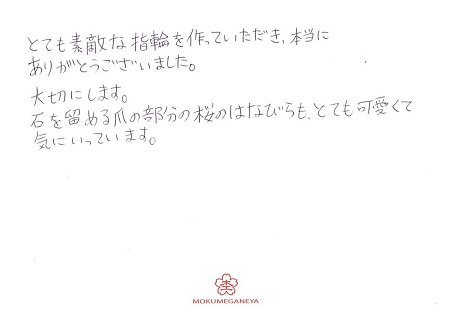 とても素敵な指輪を作っていただき、本当に
ありがとうございました。
大切にします。
石を留める爪の部分の桜のはなびらも、とても可愛くて
気にいっています。
MOKUMEGANEYA